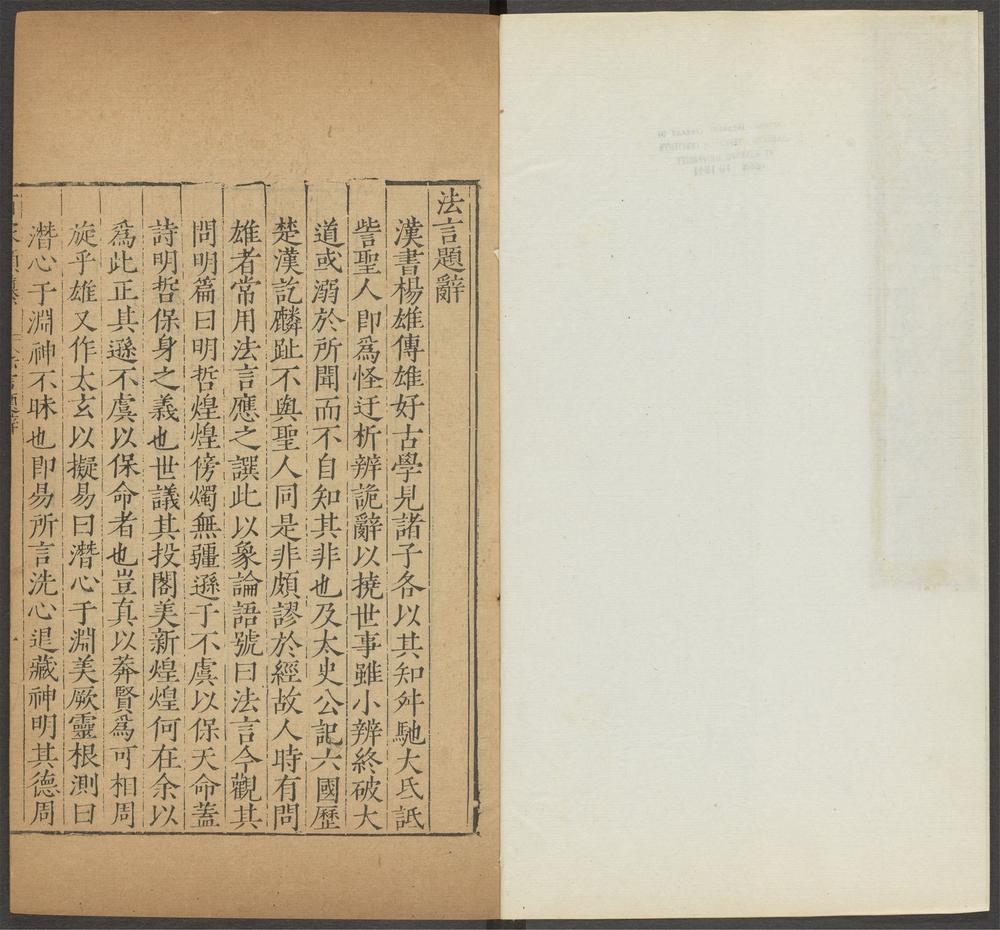 法言題辭
漢書楊雄傳雄好古學見諸子各以其知舛馳大氐詆
訾聖人即爲怪迂析辨詭辭以撓世事雖小辨終破大
道或溺於所聞而不自知其非也及太史公記六國歷
楚漢訖麟趾不與聖人同是非頗謬於經故人時有問
雄者常用法言應之譔此以象論語號曰法言今觀其
問明篇曰明哲煌煌傍燭無疆遜于不虞以保天命蓋
詩明哲保身之義也世議其投閣美新煌煌何在余以
爲此正其遜不虞以保命者也豈真以莽賢爲可相周
旋乎雄又作太玄以擬易曰濳心于淵美厥靈根測曰
濳心于淵神不昧也即易所言洗心退藏神明其德周